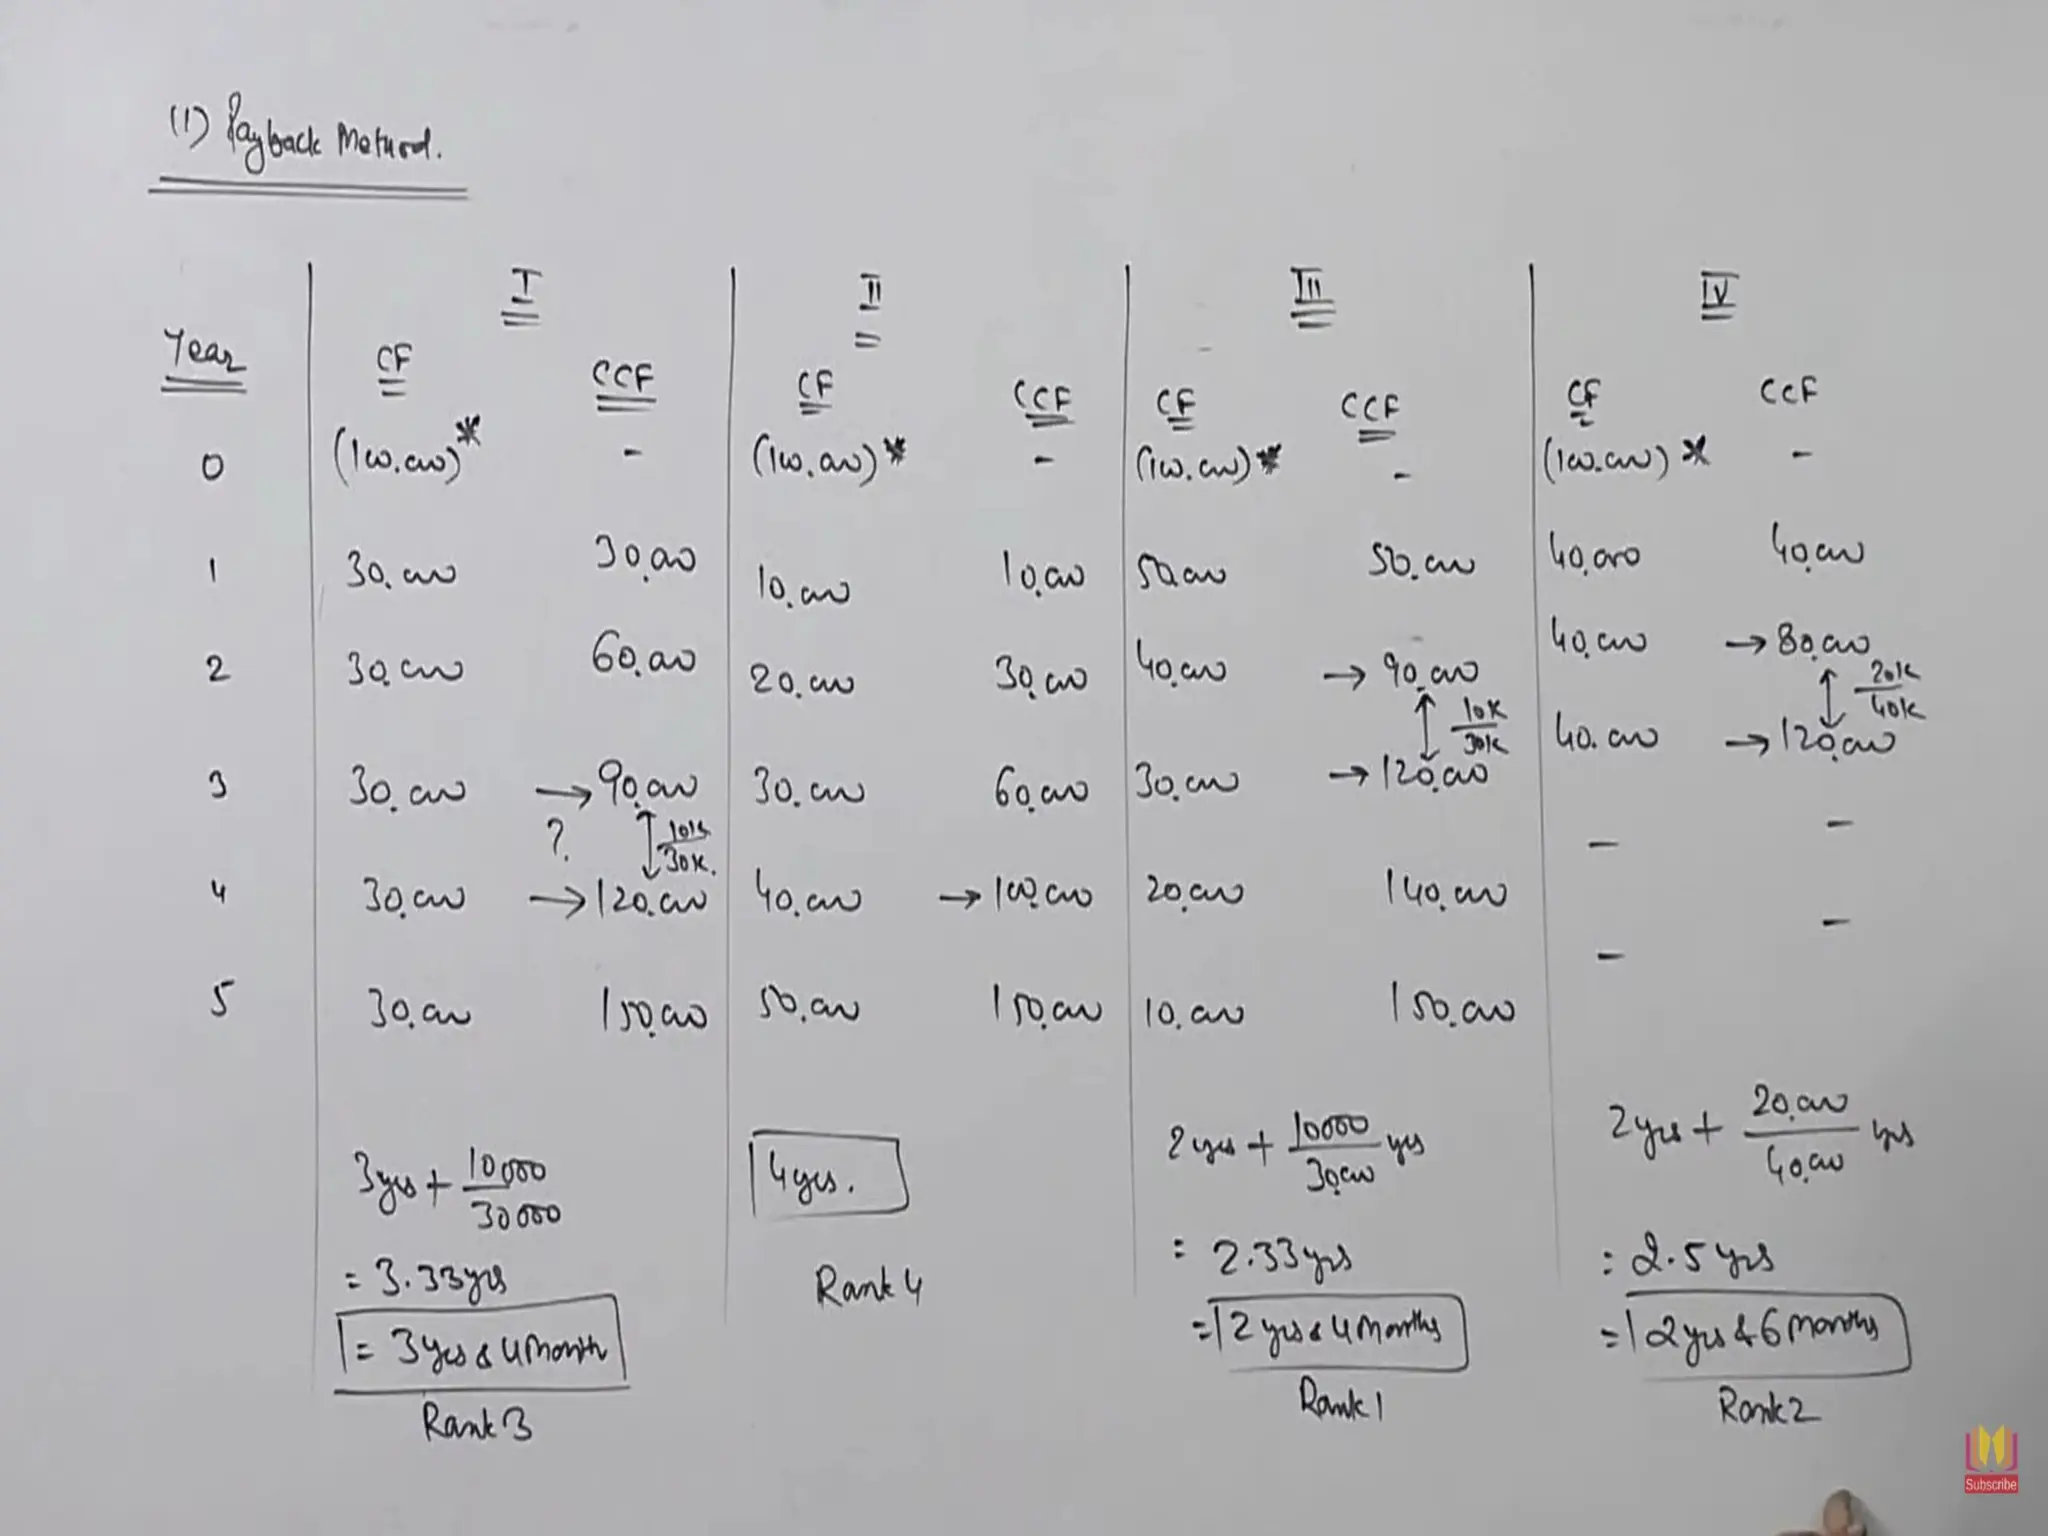 (1) Payback Method.
I II III IV
Year CF CCF CF CCF CF CCF CF CCF
0 (100,000)* - (100,000)* - (100,000)* - (100,000)* -
1 30,000 30,000 10,000 10,000 50,000 50,000 40,000 40,000
2 30,000 60,000 20,000 30,000 40,000 → 90,000 40,000 → 80,000
10K/30K 20K/40K
3 30,000 → 90,000 30,000 60,000 30,000 → 120,000 40,000 → 120,000
? 10K/30K. - -
4 30,000 → 120,000 40,000 → 100,000 20,000 140,000 - -
5 30,000 150,000 50,000 150,000 10,000 150,000
3yrs + 10000/30000 4yrs. 2yrs + 10000/30,000 yrs 2yrs + 20,000/40,000 yrs
= 3.33yrs Rank 4 = 2.33yrs = 2.5 yrs
= 3yrs & 4 month = 2 yrs & 4 Months = 2yrs & 6 Months
Rank 3 Rank 1 Rank 2
Subscribe